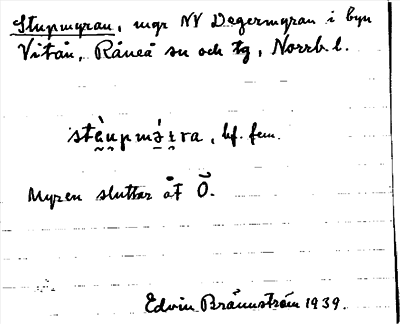 Stupmyran, myr NV Degermyran i byn
Vitån, Råneå sn och tg, Norrb. l.
stàu̯pmỳ̱ra, bf. fem.
Myren sluttar åt Ö.
Edvin Brännström 1939.